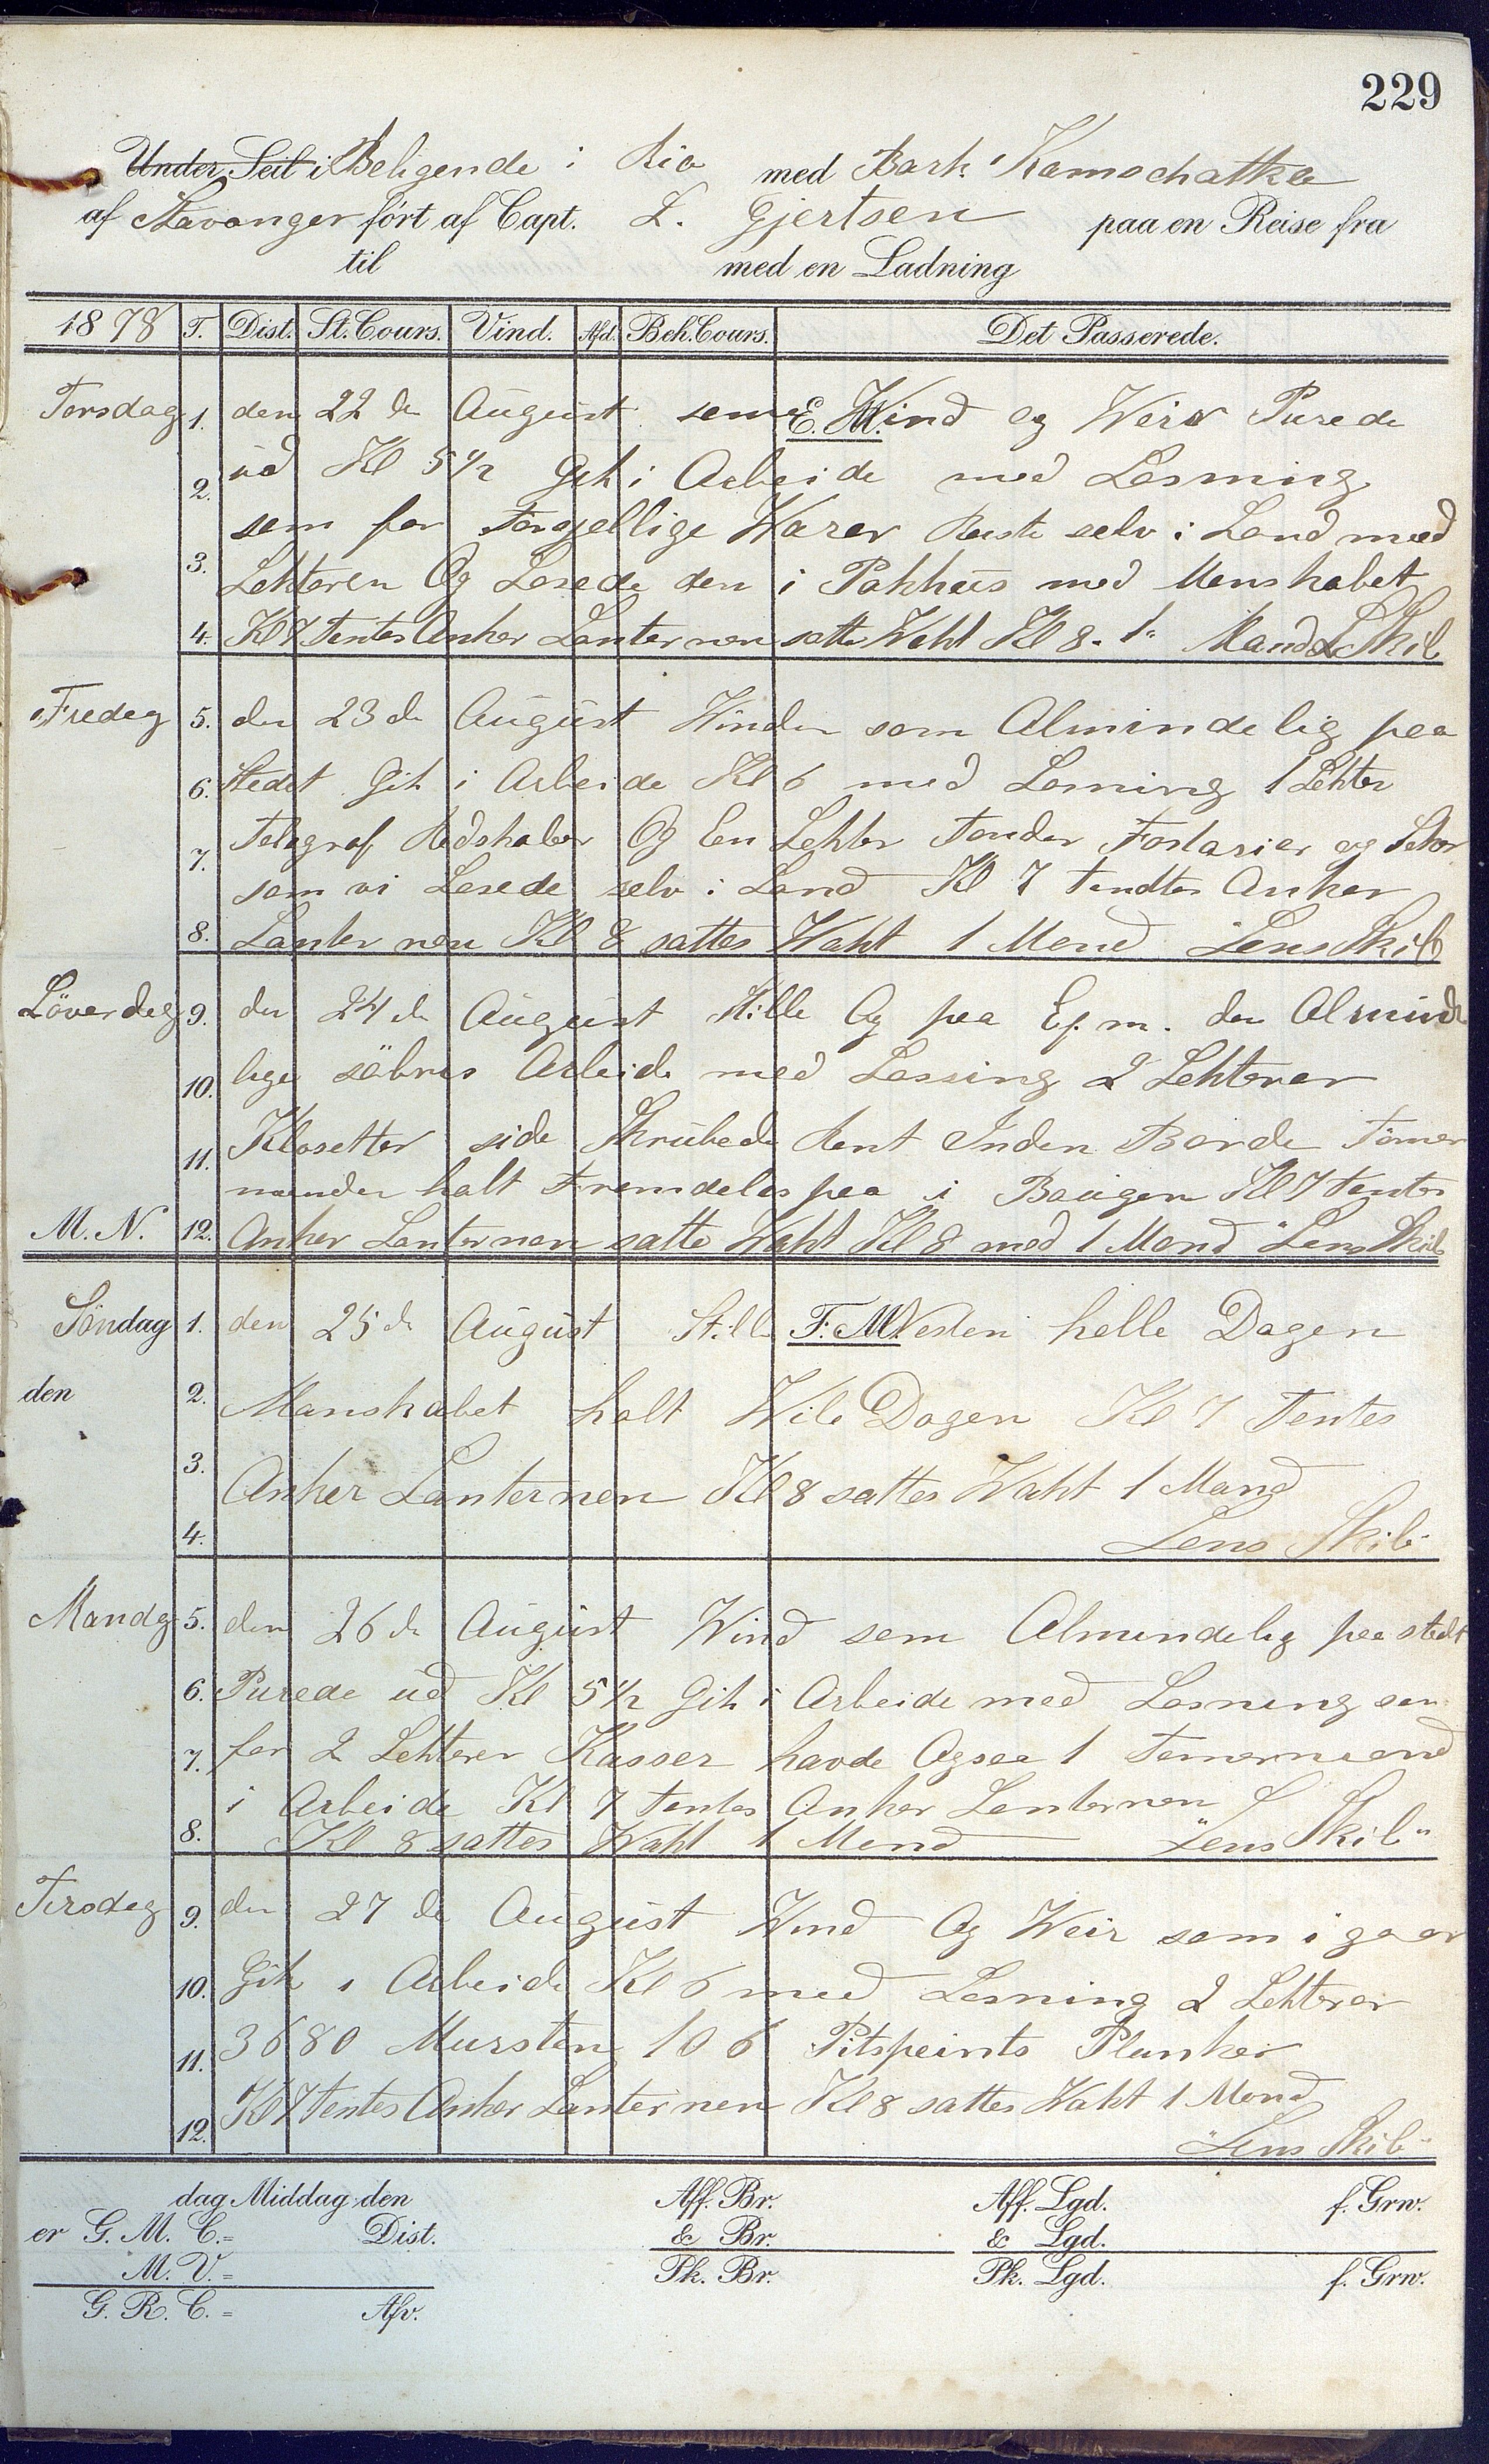 229
Under Seil i Beligende i Rio med Bark Kamschatka
af Stavanger fört af Capt. L. Gjertsen paa en Reise fra
til med en Ladning
1878 T. Dist. St. Cours. Vind. Afd. Beh. Cours. Det Passerede.
Torsdag 1. den 22 de August samme E. M. Wind og Weir Purede
2. ud Kl 5 1/2 Gik i Arbeide med Losning
som for Forsjellige Warer Roste selv i Land med
3. Lekteren Og Losede den i Pakhus med Manskabet
4. Kl 7 tentes Anker Lanternen satte Wakt Kl 8. 1 Mand L Skib
Fredag 5. den 23 de August Winden som Almindelig paa
6. Stedet Gik i Arbeide Kl 6 med Losning 1 Lekter
7. Telegraf Redskaber Og En Lekter Tønder
som vi Losede selv i Land Kl 7 tendtes Anker
8. Lanternen Kl 8 sattes Wakt 1 Mand Lens Skib
Löverdag 9. den 24 de August Stille Og paa Ef. m. den Almind
10. lige söbris Arbeide med Lossing 2 Lekterer
11. Klosetter side Skrubede Rent Inden Borde Tömer
mænder halt Fremdeles paa i Baugen Kl 7 tentes
M. N. 12. Anker Lanternen satte Wakt Kl 8 med 1 Mand Lens Skib
Söndag 1. den 25 de August Stille F. M. Westen helle Dagen
den 2. Manskabet halt Wile Dagen Kl 7 Tentes
3. Anker Lanternen Kl 8 sattes Wakt 1 Mand
4. Lens Skib
Mandg 5. den 26 de August Wind som Almindelig paa stedt
6. Purede ud Kl 5 1/2 Gik i Arbeide med Losning som
7. for 2 Lekterer Kasser havde Ogsaa 1 Tømermand
i Arbeide Kl 7 tentes Anker Lanternen
8. Kl 8 sattes Wakt 1 Mand Lens Skib
Tirsdag 9. den 27 de August Wind Og Weir som i gaar
10. Gik i Arbeide Kl 6 med Losning 2 Lekterer
11. 3680 Mursten 106 Pitspeints Planker
12. Kl 7 tentes Anker Lanternen Kl 8 sattes Wakt 1 Mand
Lens Skib
dag Middag den Aff. Br. Aff. Lgd. f. Grw.
er G. M. C.= Dist. & Br. & Lgd.
M. V.= Pk. Br. Pk. Lgd. f. Grw.
G. R. C.= Afv.